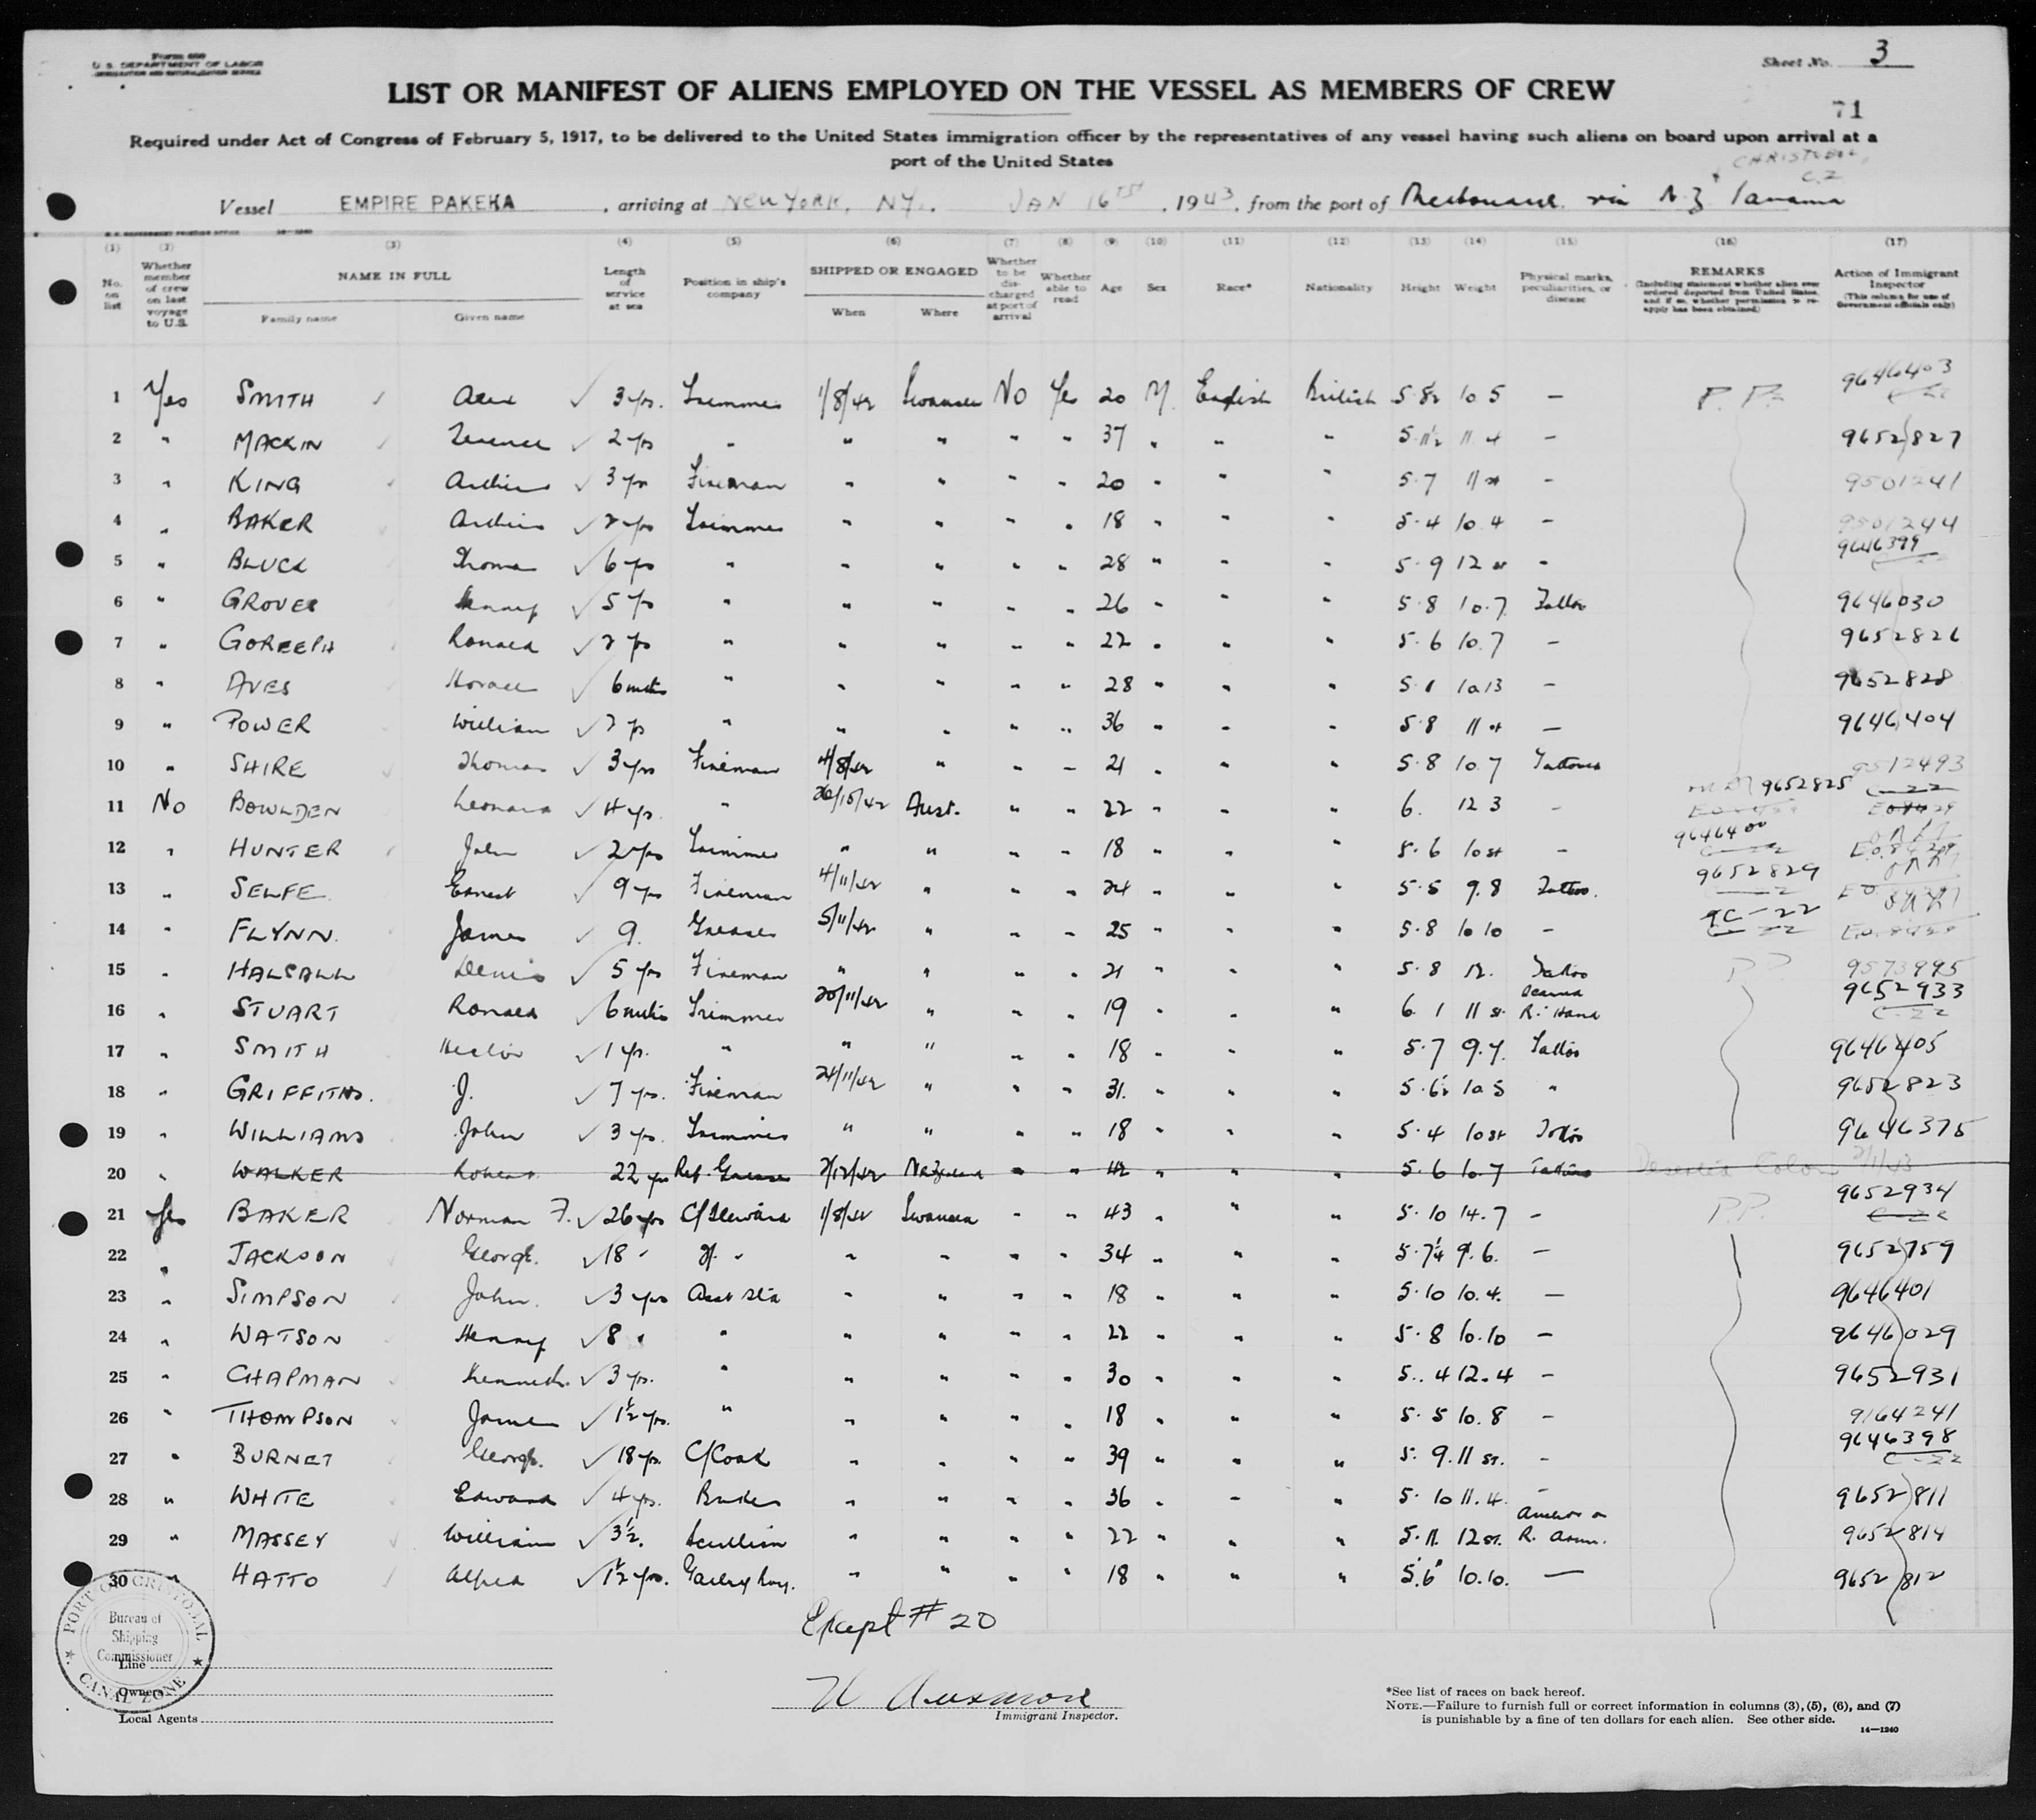 Form 680
U. S. DEPARTMENT OF LABOR
IMMIGRATION AND NATURALIZATION SERVICE
Sheet No. 3
LIST OR MANIFEST OF ALIENS EMPLOYED ON THE VESSEL AS MEMBERS OF CREW
71
Required under Act of Congress of February 5, 1917, to be delivered to the United States immigration officer by the representatives of any vessel having such aliens on board upon arrival at a
port of the United States
Vessel EMPIRE PAKEHA , arriving at NEW YORK, NY., JAN 16 , 1943, from the port of Melbourne via N.Z. Panama
(1) (2) (3) (4) (5) (6) (7) (8) (9) (10) (11) (12) (13) (14) (15) (16) (17)
No. on list
Whether member of crew on last voyage to U.S.
NAME IN FULL
Family name Given name
Length of service at sea
Position in ship's company
SHIPPED OR ENGAGED
When Where
Whether to be discharged at port of arrival
Whether able to read
Age Sex Race* Nationality Height Weight
Physical marks, peculiarities, or disease
REMARKS
(Including statement whether alien ever ordered deported from United States, and if so, whether permission to reapply has been obtained)
Action of Immigrant Inspector
(This column for use of Government officials only)
1 Yes SMITH Alex 3 yrs. Trimmer 1/8/42 Swansea No Yes 20 M. English British 5.8½ 10 5 — P.P. 9646403
2 " MACKIN Terence 2 yrs " " " " " 37 " " " 5.11½ 11.4 — 9652827
3 " KING Arthur 3 yrs Fireman " " " " 20 " " " 5.7 11 st — 9501241
4 " BAKER Arthur 2 yrs Trimmer " " " " 18 " " " 5.4 10.4 — 9501244
5 " BLUCK Thomas 6 yrs " " " " " 28 " " " 5.9 12 st - 9646399
6 " GROVES Henry 5 yrs " " " " " 26 " " " 5.8 10.7 Tattoo 9646030
7 " Ronald 2 yrs " " " " " 22 " " " 5.6 10.7 — 9652826
8 " AVES Horace 6 mths " " " " " 28 " " " 5.1 10 13 — 9652828
9 " POWER William 2 yrs " " " " " 36 " " " 5.8 11 st — 9646404
10 " SHIRE Thomas 3 yrs Fireman 4/8/42 " " " 21 " " " 5.8 10.7 Tattoos 9512493
11 No BOWLDEN Leonard 4 yrs. " 26/10/42 Aust. " " 22 " " " 6. 12 3 - 9652825
12 " HUNTER John 2 yrs Trimmer " " " " 18 " " " 5.6 10 st - 9646400
13 " SELFE Ernest 9 yrs Fireman 4/11/42 " " " 24 " " " 5.5 9.8 Tattoo. 9652829
14 " FLYNN. James 9. Greaser 5/11/42 " " " 25 " " " 5.8 10 10 -
15 " HALSALL Denis 5 yrs Fireman " " " " 21 " " " 5.8 12. Tattoo P.P. 9573995
16 " STUART Ronald 6 mths Trimmer 20/11/42 " " " 19 " " " 6.1 11 st. Scarred R. Hand 9652933
17 " SMITH Hector 1 yr. " " " " " 18 " " " 5.7 9.7. Tattoo 9646405
18 " GRIFFITHS. J. 7 yrs. Fireman 24/11/42 " " " 31. " " " 5.6½ 10 5 " 9652823
19 " WILLIAMS John 3 yrs. Trimmer " " " " 18 " " " 5.4 10 st Tattoo 9646375
20 " WALKER Robert 22 yrs Ref. Greaser 2/12/42 " " 42 " " " 5.6 10.7 Tattoos Deserted Colon
21 Yes BAKER Norman F. 26 yrs C/Steward 1/8/42 Swansea " " 43 " " " 5.10 14.7 - P.P. 9652934
22 " JACKSON George. 18 " " " " " 34 " " " 5.7¼ 9.6. — 9652759
23 " SIMPSON John. 3 yrs Asst Std " " " " 18 " " " 5.10 10.4. — 9646401
24 " WATSON Henry 8 " " " " " " 22 " " " 5.8 10.10 — 9646029
25 " CHAPMAN Kenneth. 3 yrs. " " " " " 30 " " " 5.4 12.4 - 9652931
26 " THOMPSON James 1½ yrs. " " " " " 18 " " " 5.5 10.8 - 9164241
27 " BURNET George. 18 yrs. C/Cook " " " " 39 " " " 5.9. 11 st. - 9646398
28 " WHITE Edward 4 yrs. Baker " " " " 36 " " " 5.10 11.4. - 9652811
29 " MASSEY William 3½. Scullion " " " " 22 " " " 5.11. 12 st. Anchor on R. Arm. 9652814
30 " HATTO Alfred 1½ yrs. Galley boy. " " " " 18 " " " 5.6 10.10. — 9652812
Except # 20
PORT OF CRISTOBAL
Bureau of Shipping Commissioner
CANAL ZONE
Line
Owners
Local Agents
Immigrant Inspector.
*See list of races on back hereof.
NOTE.—Failure to furnish full or correct information in columns (3), (5), (6), and (7)
is punishable by a fine of ten dollars for each alien. See other side.
14—1240